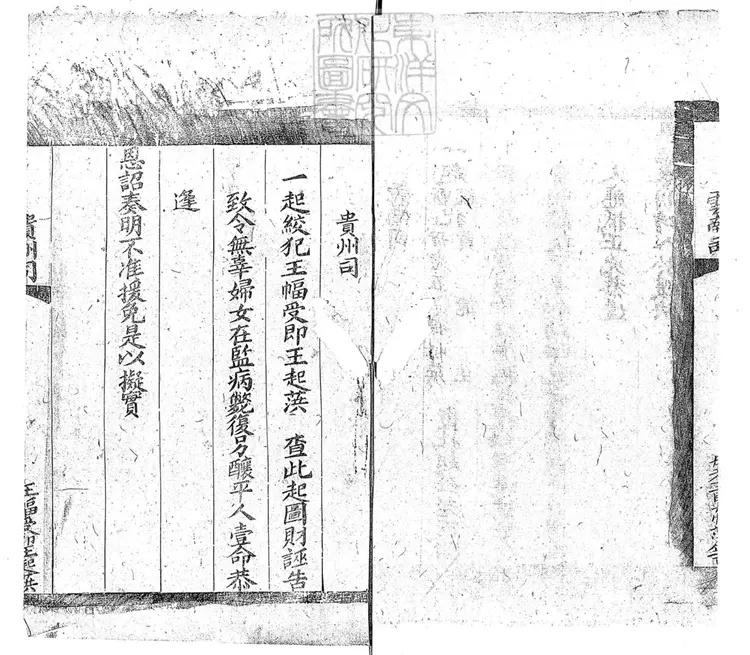 東洋文
化研究
所圖書
雲南司
貴州司
一起絞犯王幅受即王起葓 查此起圖財誣告
致令無辜婦女在監病斃復另釀平人壹命恭
逢
恩詔奏明不准援免是以擬實
貴州司
王幅受即王起葓